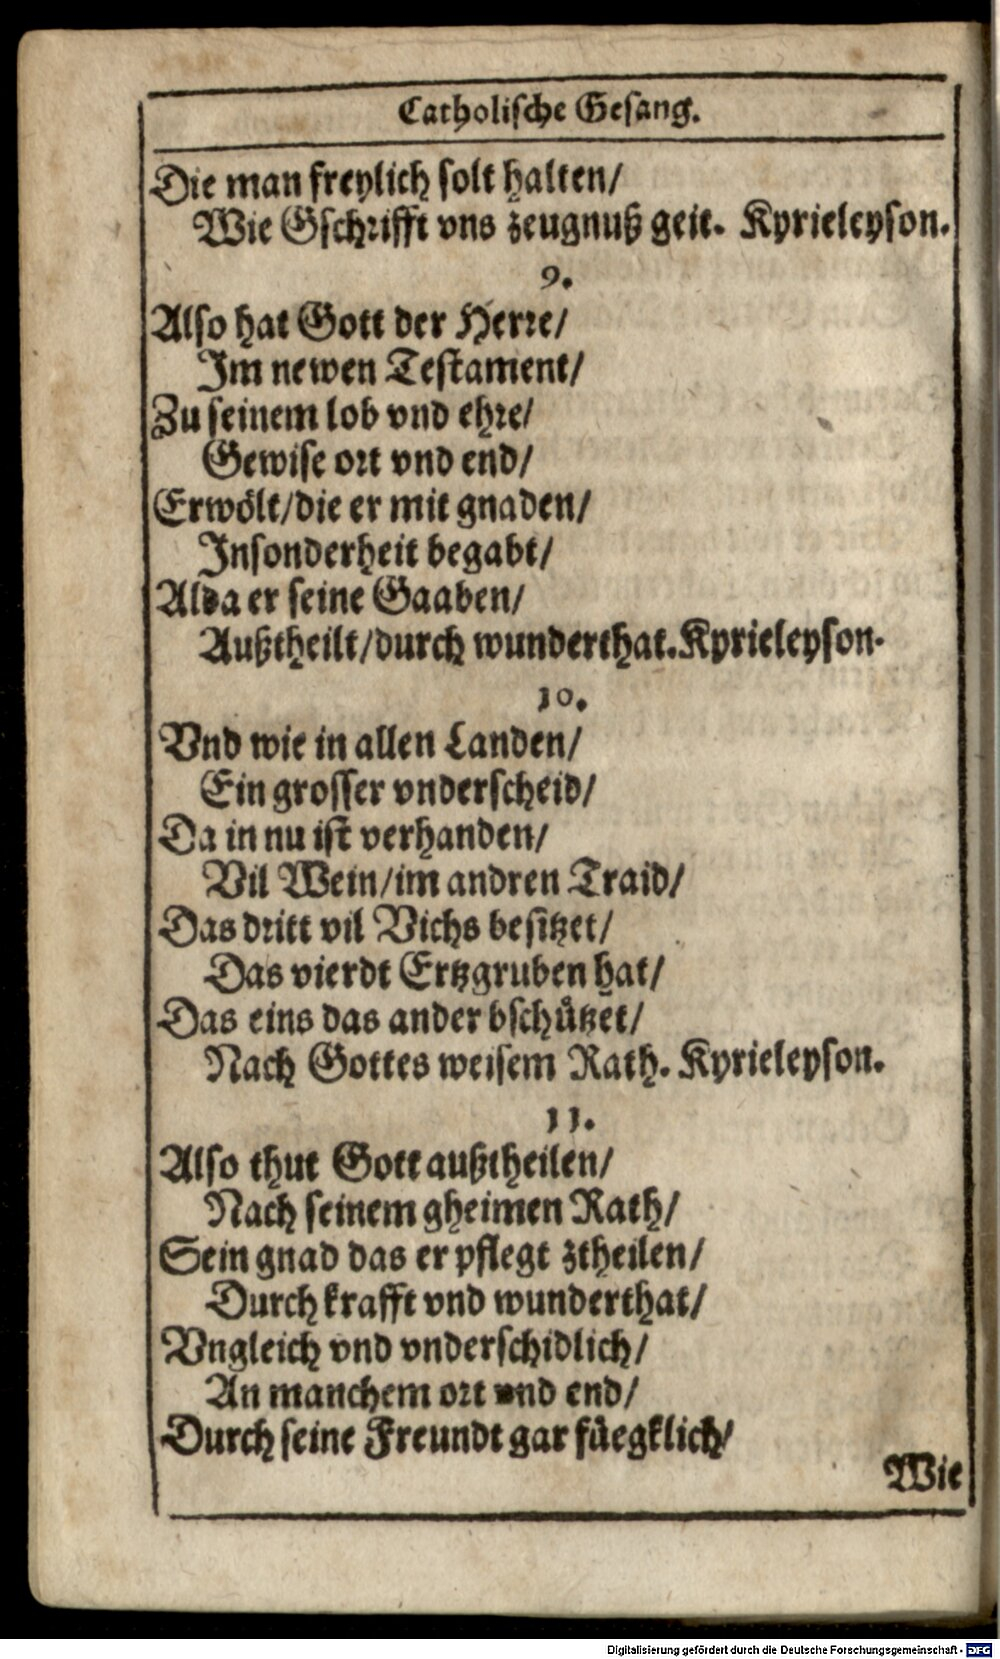 Catholische Gesang.
Die man freylich solt halten/
Wie Gschrifft vns zeugnuß geit. Kyrieleyson.
9.
Also hat Gott der Herre/
Im newen Testament/
Zu seinem lob vnd ehre/
Gewise ort vnd end/
Erwölt/die er mit gnaden/
Insonderheit begabt/
Alda er seine Gaaben/
Außtheilt/durch wunderthat. Kyrieleyson.
10.
Vnd wie in allen Landen/
Ein grosser vnderscheid/
Da in nu ist verhanden/
Vil Wein/im andren Traid/
Das dritt vil Vichs besitzet/
Das vierdt Ertzgruben hat/
Das eins das ander bschützet/
Nach Gottes weisem Rath. Kyrieleyson.
11.
Also thut Gott außtheilen/
Nach seinem gheimen Rath/
Sein gnad das er pflegt ztheilen/
Durch krafft vnd wunderthat/
Vngleich vnd vnderschidlich/
An manchem ort vnd end/
Durch seine Freundt gar füegklich/
Wie
Digitalisierung gefördert durch die Deutsche Forschungsgemeinschaft - DFG